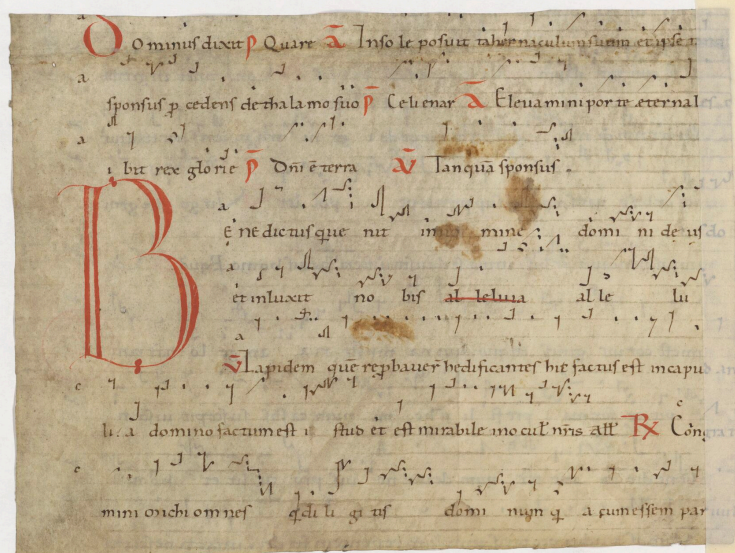 Dominus dixit P Quare A Inso le posuit tabernaculum suum et ipse t
sponsus p cedens de tha la mo suo P Celi enar A Eleva mini por te eternal
i bit rex glo rie P Dni e terra AV Tanqua sponsus .
a Be ne dictus que nit mine domi ni de us
a et inluxit no bis al leluia al le lu
a V Lapidem que reprobaver hedificantes hic factus est incapu
c li. a domino factum est i stud et est mirabile in ocul nris all R Cong
c mini omnes di li gi tis domi num q a cum essem par